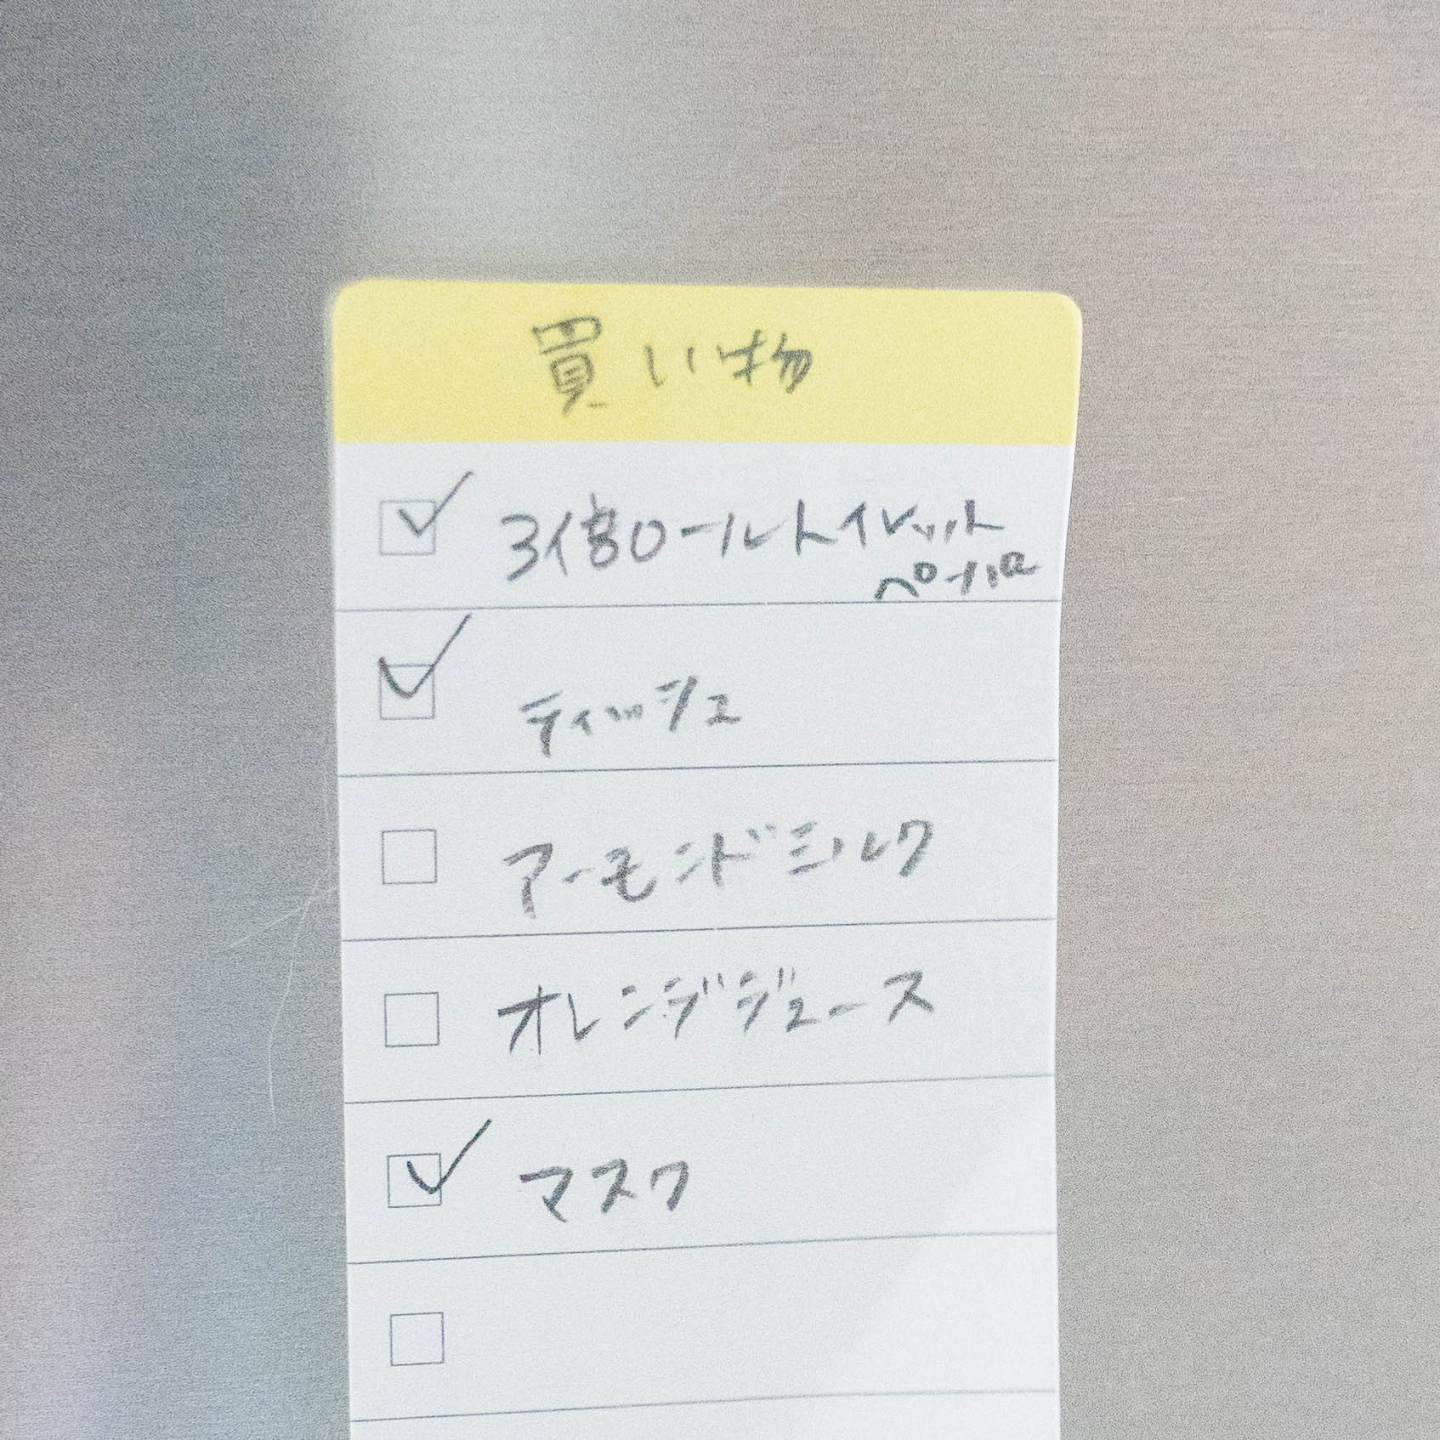 買い物
3倍ロールトイレット
ペーパー
ティッシュ
アーモンドミルク
オレンジジュース
マスク